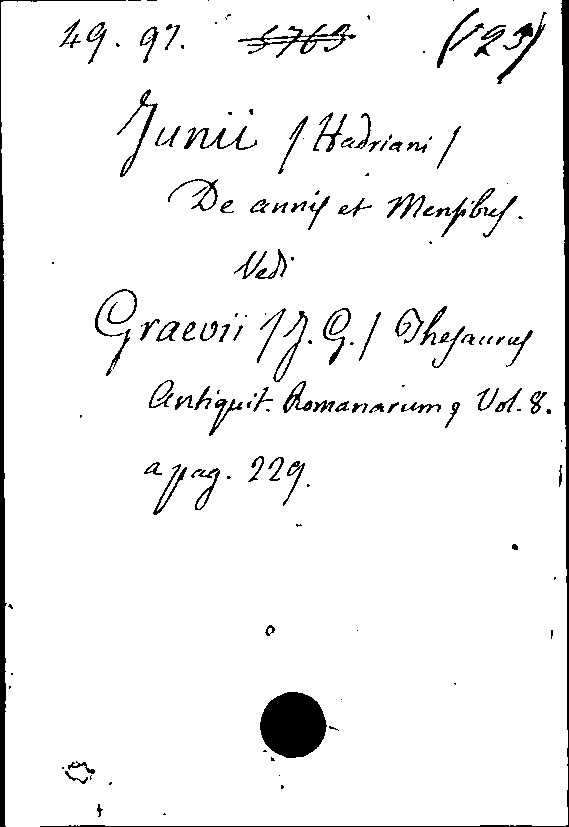 49. 97. 5763 (123)
Junii / Hadriani /
De annis et Mensibus.
Vedi
Graevii / J. G. / Thesaurus
Antiquit. Romanarum, Vol. 8.
a pag. 229.